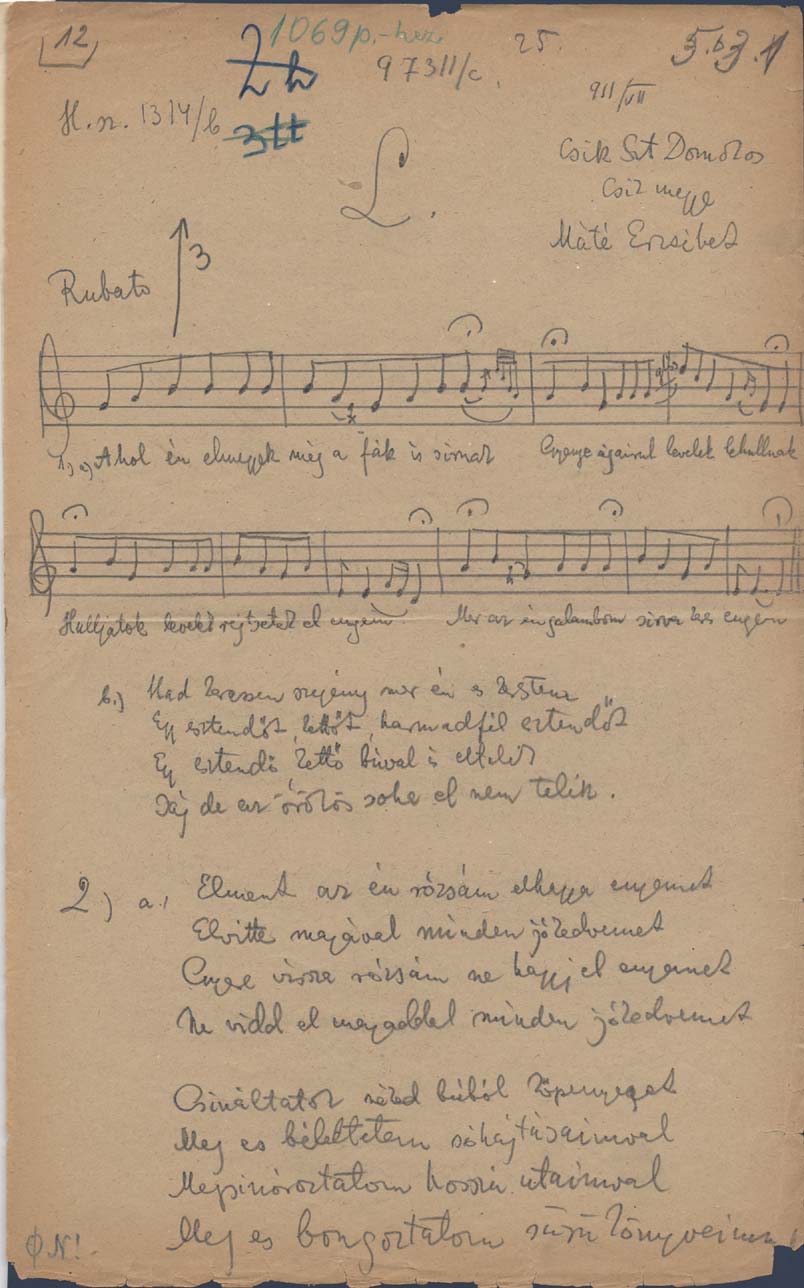 12
1069p.-hez
25.
5.b)3.1
2b
97311/c.
911/VII
H.sz. 1314/b
3tt
L.
Csik Szt Domokos
Csik megye
Máté Erzsébet
Rubato 3
1) a) Ahol én elmegyek még a fák is sirnak Gyenge ágairul levelek lehullnak
Hulljatok levelek rejtsetek el engem Mer az én galambom sirva keres engem
b.) Had keressen szegény mer én es kestem
Egy esztendőt, kettőt, harmadfél esztendőt
Egy esztendő, kettő búval is eltelik
Jáj de az örökös soha el nem telik.
2) a.) Elment az én rózsám elhagya engemet
Elvitte magával minden jókedvemet
Gyere vissza rózsám ne hagyj el engemet
Ne vidd el magaddal minden jókedvemet
Csináltatok néked búból köpenyeget
Meg es béleltetem sóhajtásaimval
Megsinóroztatom hosszu utaimval
Meg es gomboztatom sürü könyveimm
ΦN!